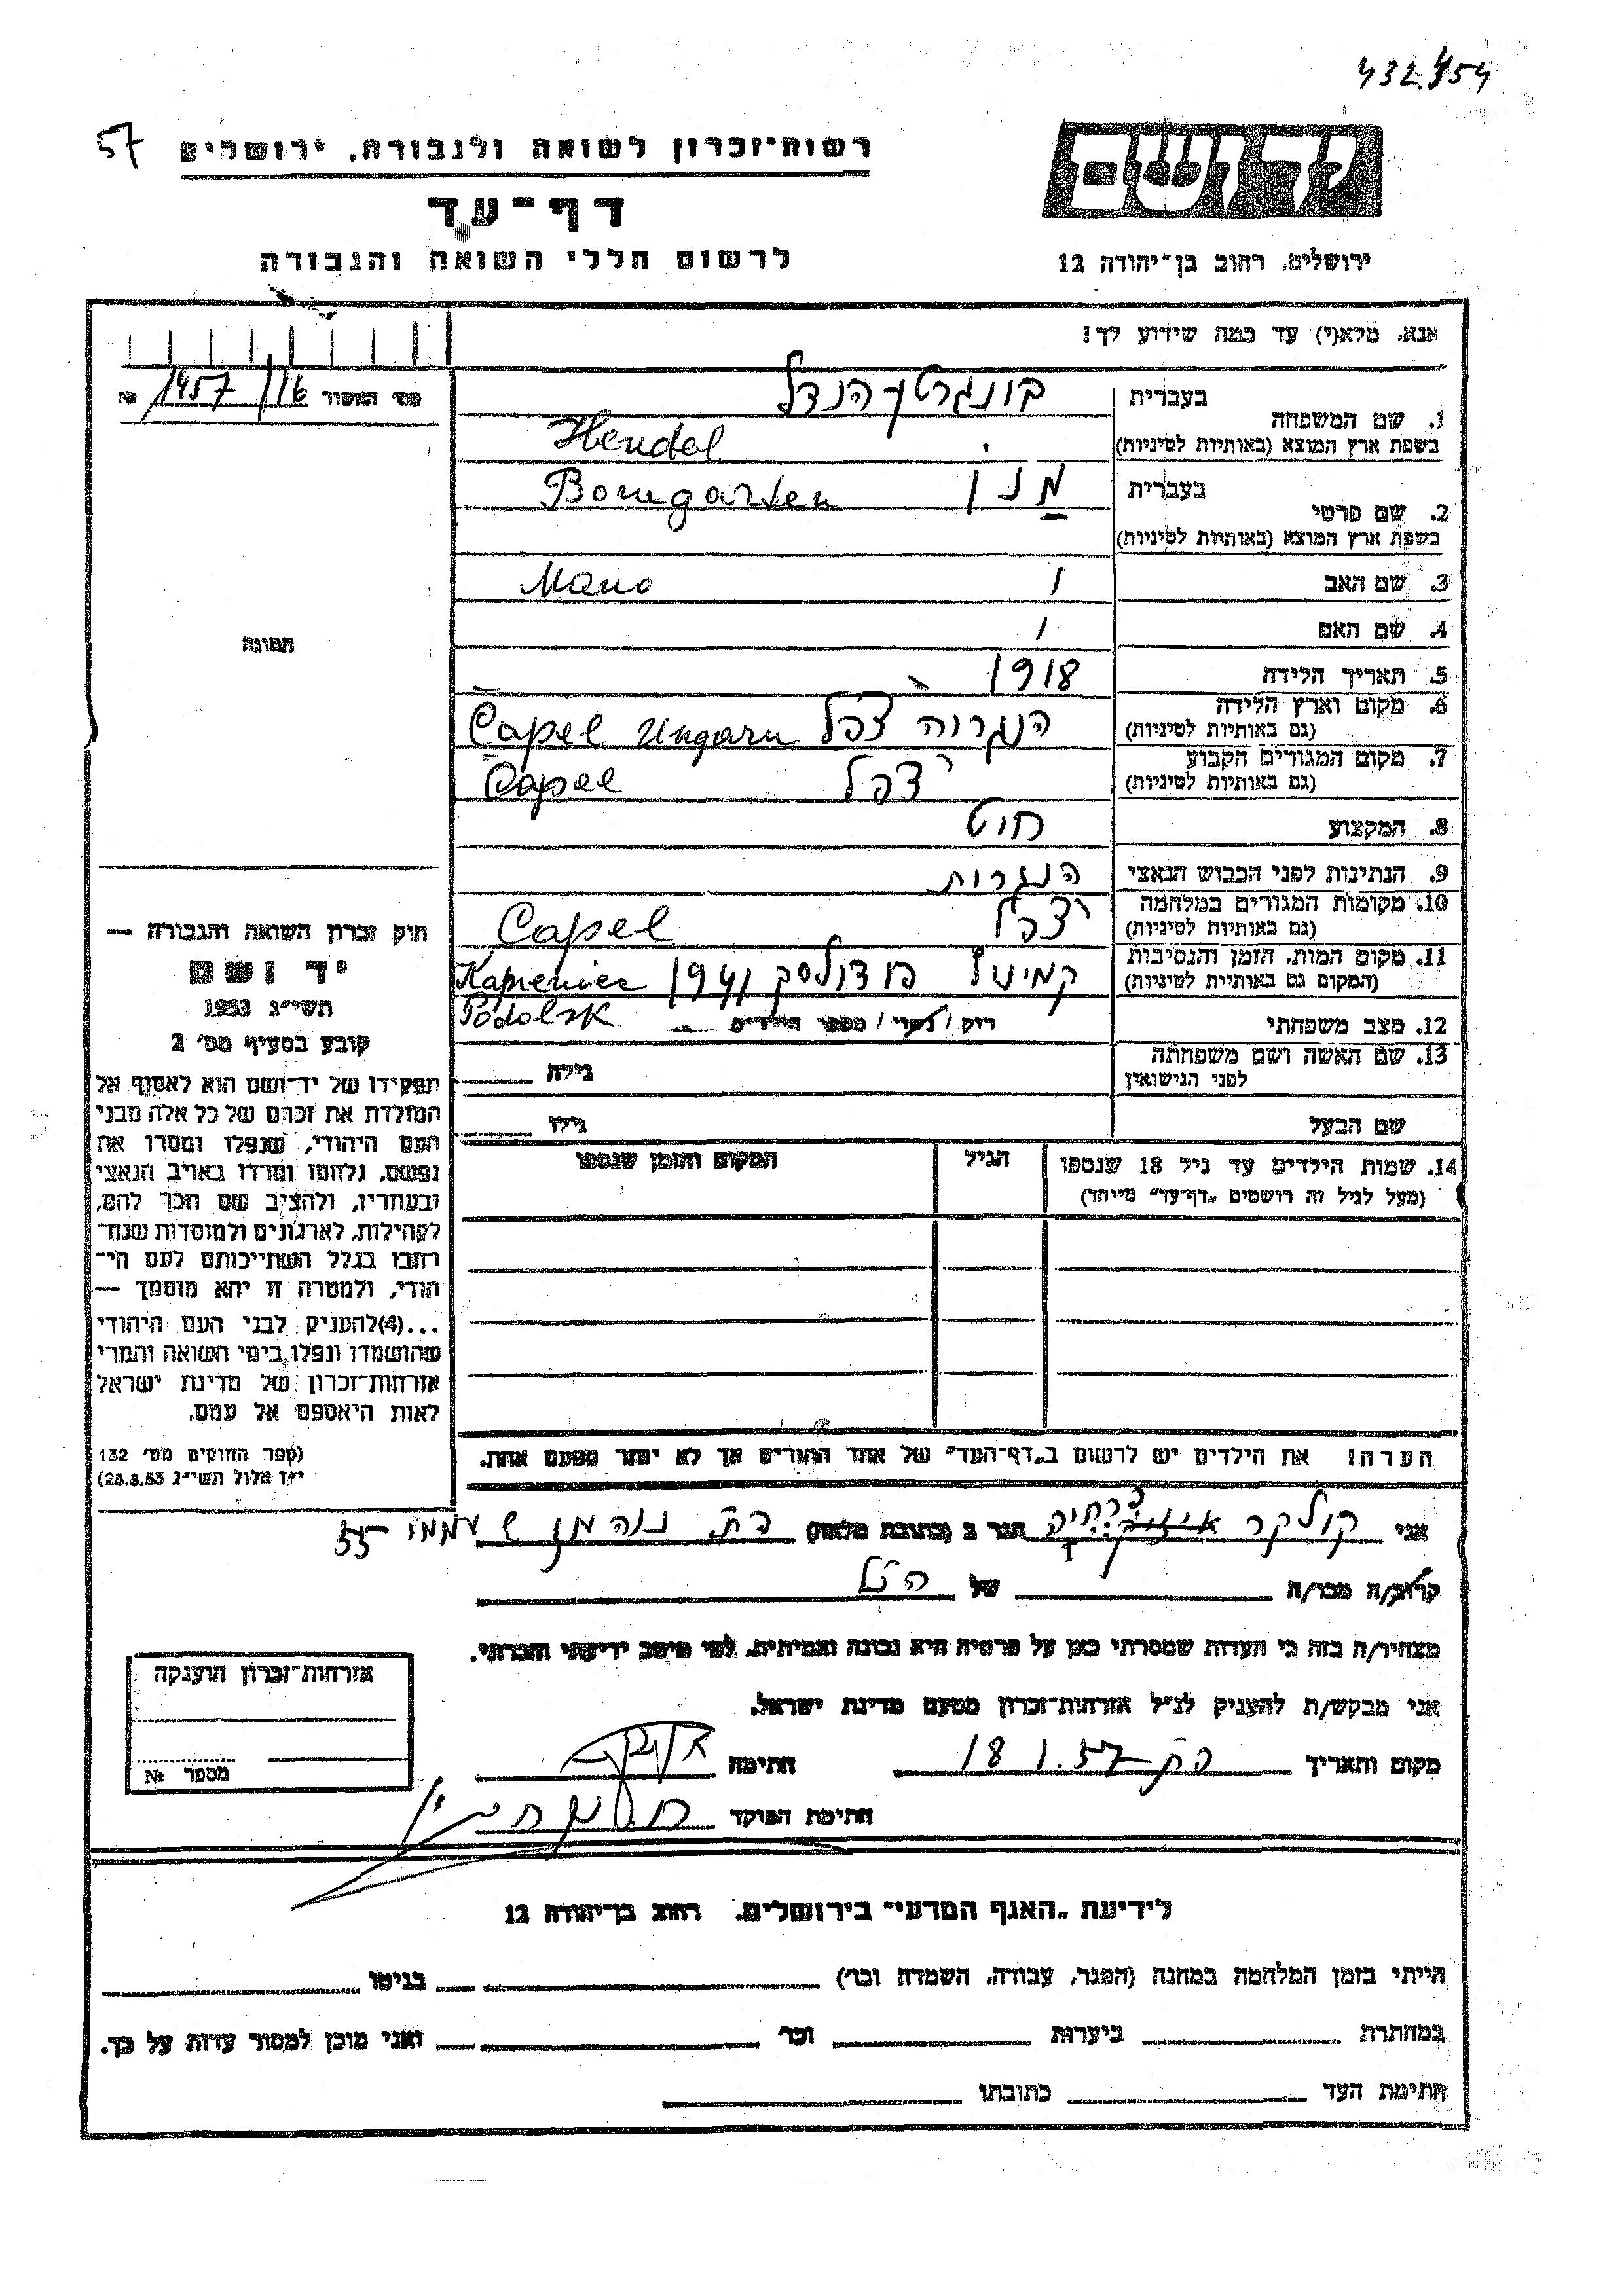 432.454
57
רשות־זכרון לשואה ולגבורה, ירושלים
דף־עד
לרשום חללי השואה והגבורה
יד ושם
ירושלים, רחוב בן־יהודה 12
אנא, מלא(י) עד כמה שידוע לך!
מס׳ האסור 16/1457 №
1. שם המשפחה
בעברית בונגרטן הנדל
בשפת ארץ המוצא (באותיות לטיניות) Hendel
Bomgarten
2. שם פרטי
בעברית מנו
בשפת ארץ המוצא (באותיות לטיניות)
Mano
3. שם האב
4. שם האם
5. תאריך הלידה 1918
6. מקום וארץ הלידה
(גם באותיות לטיניות) הנגרוה צפל Capel Ungarn
7. מקום המגורים הקבוע
(גם באותיות לטיניות) צפל Capel
8. המקצוע חוט
9. הנתינות לפני הכבוש הנאצי הנגרות
10. מקומות המגורים במלחמה
(גם באותיות לטיניות) צפל Capel
11. מקום המות, הזמן והנסיבות
(המקום גם באותיות לטיניות) פודולסק 1941
Podolsk
12. מצב משפחתי רוק / נשוי / מספר הילדים
13. שם האשה ושם משפחתה
לפני הנישואין
גילה
שם הבעל
גילו
14. שמות הילדים עד גיל 18 שנספו
(מעל לגיל זה רושמים „דף־עד״ מיוחד)
הגיל
המקום והזמן שנספו
תמונה
חוק זכרון השואה והגבורה —
יד ושם
תשי״ג 1953
קובע בסעיף מס׳ 2
תפקידו של יד־ושם הוא לאסוף אל
המולדת את זכרם של כל אלה מבני
העם היהודי, שנפלו ומסרו את
נפשם, נלחמו ומרדו באויב הנאצי
ובעוזריו, ולהציב שם וזכר להם,
לקהילות, לארגונים ולמוסדות שנח־
רבו בגלל השתייכותם לעם הי־
הודי, ולמטרה זו יהא מוסמך —
...(4)להעניק לבני העם היהודי
שהושמדו ונפלו בימי השואה והמרי
אזרחות־זכרון של מדינת ישראל
לאות היאספם אל עמם.
(ספר החוקים מס׳ 132
י״ז אלול תשי״ג 28.8.53)
הערה! את הילדים יש לרשום ב„דף־העד״ של אחד ההורים אך לא יותר מפעם אחת.
אני קולקר הגר ב (כתובת מלאה)
קרוב/ה מכר/ה של הנ״ל
מצהיר/ה בזה כי העדות שמסרתי כאן על פרטיה היא נכונה ואמיתית, לפי מיטב ידיעתי והכרתי.
אני מבקש/ת להעניק לנ״ל אזרחות־זכרון מטעם מדינת ישראל.
מקום ותאריך 18.1.57 חתימה
חתימת הפוקד
אזרחות־זכרון הוענקה
מספר №
לידיעת „האגף המדעי״ בירושלים. רחוב בן־יהודה 12
הייתי בזמן המלחמה במחנה (הסגר, עבודה, השמדה וכו׳) בגיטו
במחתרת ביערות וכו׳ ואני מוכן למסור עדות על כך.
חתימת העד כתובתו